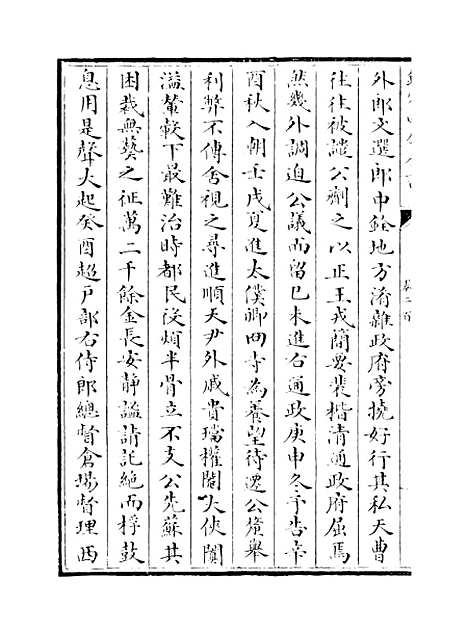 外郎文選郎中銓地方淆雜政府旁撓好行其私天曹
往往被譴公劑之以正王戎簡要裴楷清通政府屈焉
然幾外調迫公議而留己未進右通政庚申冬予告辛
酉秋入朝壬戌夏進太僕卿冏寺為養望待遷公獨舉
利弊不傳舍視之尋進順天尹外戚貴璫權閹大俠闐
溢輦轂下最難治時都民役煩半骨立不支公先蘇其
困裁無藝之征萬二千餘金長安靜謐請託絕而桴鼓
息用是聲大起癸酉超戶部右侍郎總督倉場督理西